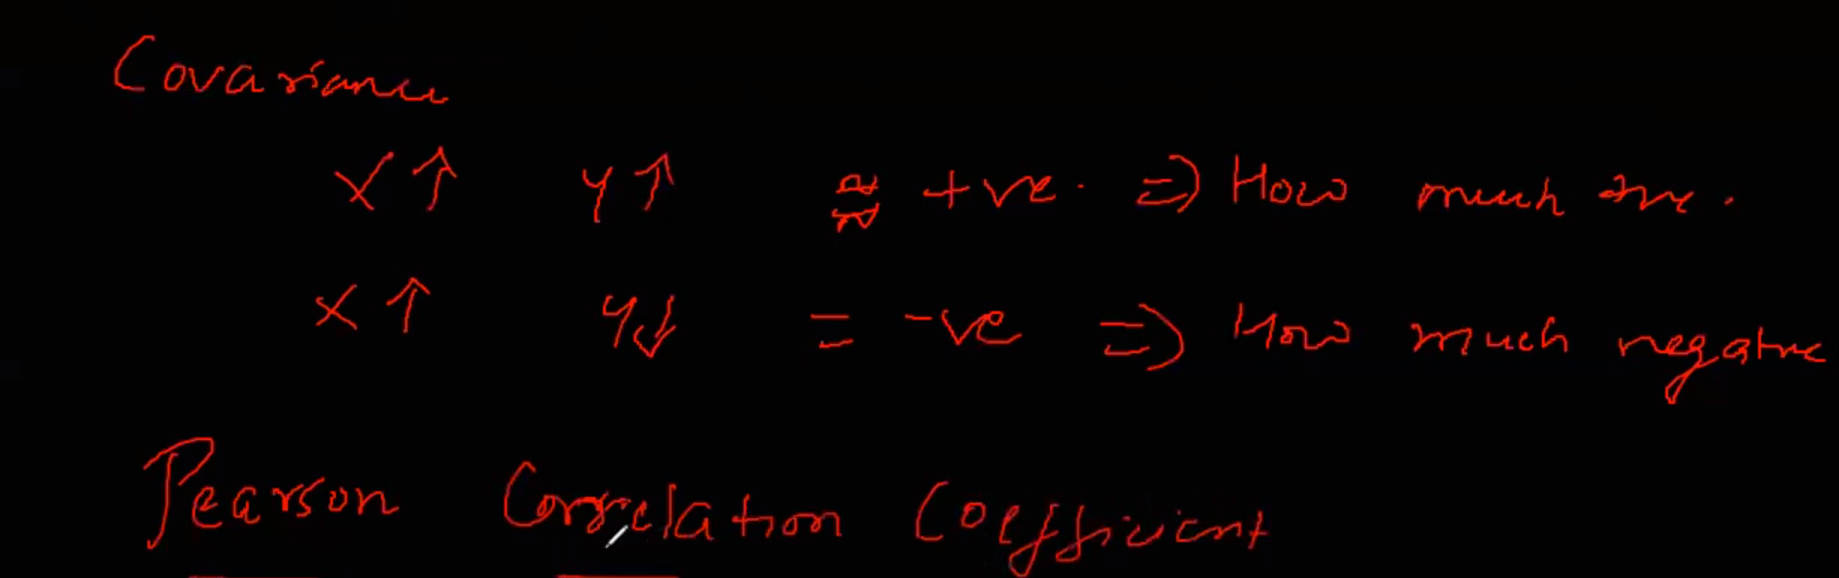 Covariance
X ↑ Y ↑ ≈ +ve. ⇒ How much +ve.
X ↑ Y ↓ = -ve ⇒ How much negative
Pearson Correlation Coefficient